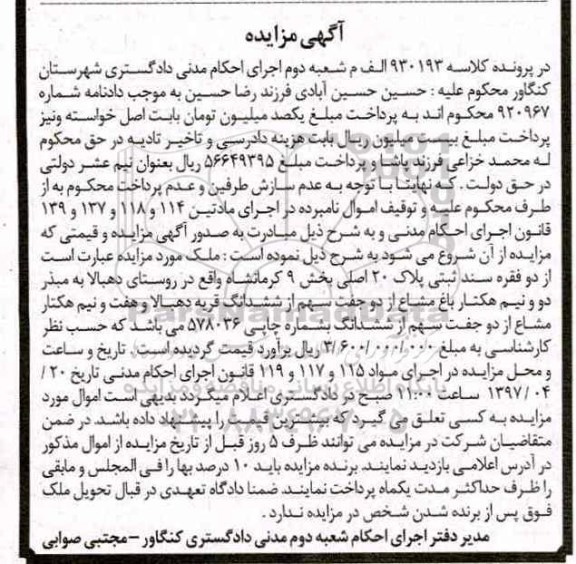 آگهی مزایده
در پرونده کلاسه ۹۳۰۱۹۳ الف م شعبه دوم اجرای احکام مدنی دادگستری شهرستان
کنگاور محکوم علیه : حسین حسین آبادی فرزند رضا حسین به موجب دادنامه شماره
۹۲۰۹۶۷ محکوم اند به پرداخت مبلغ یکصد میلیون تومان بابت اصل خواسته ونیز
پرداخت مبلغ بیست میلیون ریال بابت هزینه دادرسی و تاخیر تادیه در حق محکوم
له محمد خزاعی فرزند باشا و پرداخت مبلغ ۵۶۶۴۹۳۹۵ ریال بعنوان نیم عشر دولتی
در حق دولت . که نهایتا با توجه به عدم سازش طرفین و عدم پرداخت محکوم به از
طرف محکوم علیه و توقیف اموال نامبرده در اجرای مادتین ۱۱۴ و ۱۱۸ و ۱۳۷ و ۱۳۹
قانون اجرای احکام مدنی و به شرح ذیل مبادرت به صدور آگهی مزایده و قیمتی که
مزایده از آن شروع می شود به شرح ذیل نموده است : ملک مورد مزایده عبارت است
از دو فقره سند ثبتی پلاک ۲۰ اصلی بخش ۹ کرمانشاه واقع در روستای دهبالا به مبذر
دو و نیم هکتار باغ مشاع از دو جفت سهم از ششدانگ قریه دهبالا و هفت و نیم هکتار
مشاع از دو جفت سهم از ششدانگ بشماره چاپی ۵۷۸۰۳۶ می باشد که حسب نظر
کارشناسی به مبلغ ۳/۶۰۰/۰۰۰/۰۰۰ ریال برآورد قیمت گردیده است . تاریخ و ساعت
و محل مزایده در اجرای مواد ۱۱۵ و ۱۱۷ و ۱۱۹ قانون اجرای احکام مدنی تاریخ ۲۰ /
۰۴ / ۱۳۹۷ ساعت ۱۱:۰۰ صبح در دادگستری اعلام میگردد بدیهی است اموال مورد
مزایده به کسی تعلق می گیرد که بیشترین قیمت را پیشنهاد داده باشد. در ضمن
متقاضیان شرکت در مزایده می توانند ظرف ۵ روز قبل از تاریخ مزایده از اموال مذکور
در آدرس اعلامی بازدید نمایند. برنده مزایده باید ۱۰ درصد بها را فی المجلس و مابقی
را ظرف حداکثر مدت یکماه پرداخت نمایند. ضمنا دادگاه تعهدی در قبال تحویل ملک
فوق پس از برنده شدن شخص در مزایده ندارد .
مدیر دفتر اجرای احکام شعبه دوم مدنی دادگستری کنگاور – مجتبی صوابی
ParsNamadData